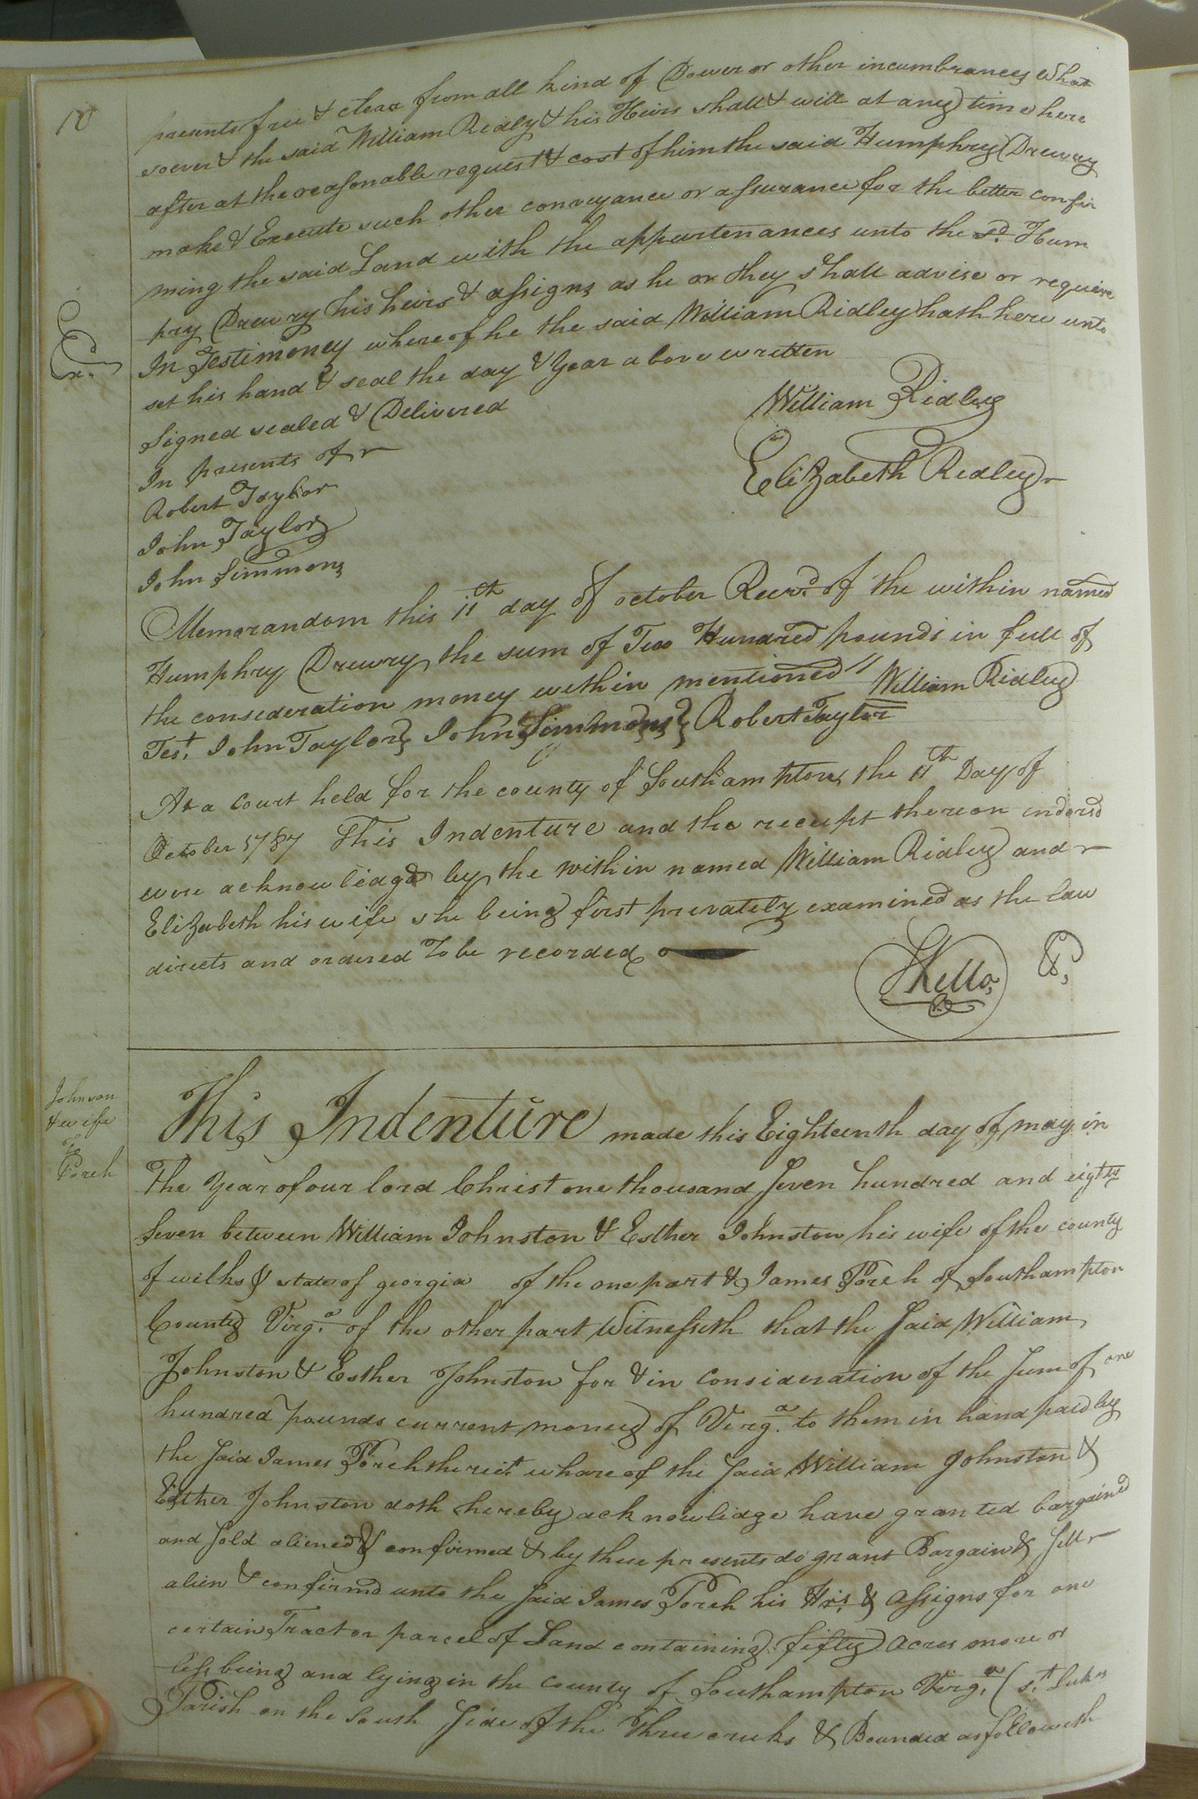 10
presents free & clear from all kind of Dower or other incumbrances what
soever & the said William Ridley & his Heirs shall & will at any time here
after at the reasonable request & cost of him the said Humphry Drewry
make & Execute such other conveyance or assurance for the better confir
ming the said Land with the appurtenances unto the sd. Hum
phry Drewry his heirs & assigns as he or they shall advise or require
In Testimoney whereof he the said William Ridley hath here unto
set his hand & seal the day & Year above written
Signed sealed & Delivered
In presents of
William Ridley
Elizabeth Ridley
Robert Taylor
John Taylor
John Simmons
Ex.
Memorandom this 11th day of october Recvd. of the within named
Humphry Drewry the sum of Two Hundred pounds in full of
the consideration money within mentioned William Ridley
Test. John Taylor, John Simmons, Robert Taylor
At a court held for the county of Southampton the 11th Day of
October 1787 This Indenture and the receipt thereon indorsd
were acknowlidged by the within named William Ridley and
Elizabeth his wife she being first privately examined as the law
directs and ordered to be recorded
Kello
Johnson
& wife
to
Porch
This Indenture made this Eighteenth day of may in
The Year of our lord Christ one thousand Seven hundred and eighty
Seven between William Johnston & Esther Johnston his wife of the county
of wilks & state of georgia of the one part & James Porch of Southampton
County Virga. of the other part Witnesseth that the Said William
Johnston & Esther Johnston for & in consideration of the Sum of one
hundred pounds current money of Virga. to them in hand paid by
the Said James Porch the rict. whareof the Said William Johnston &
Esther Johnston doth hereby acknowlidge have granted bargained
and Sold aliened & confirmed & by these presents do grant Bargain & Sell
alien & confirm unto the Said James Porch his Hrs. & assigns for one
certain Tract or parcel of Land containing fifty acres more or
less being and lying in the county of Southampton Virga. (St. Lukes
Parish on the South Side of the Three creeks & Bounded as followeth